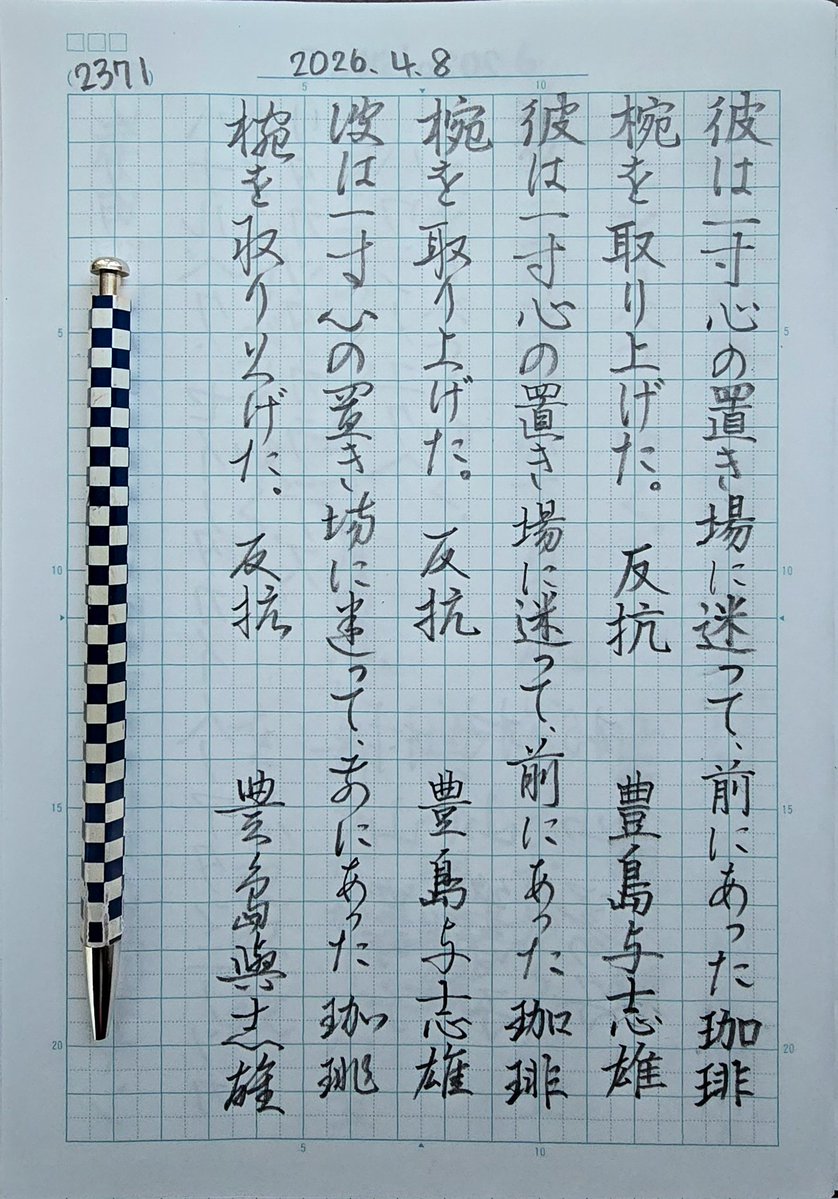 (2371)
2026.4.8
彼は一寸心の置き場に迷って、前にあった珈琲
椀を取り上げた。 反抗 豊島与志雄
彼は一寸心の置き場に迷って、前にあった珈琲
椀を取り上げた。 反抗 豊島与志雄
彼は一寸心の置き場に迷って、前にあった珈琲
椀を取り上げた。 反抗 豊島與志雄
5
10
5
10
15
20
5
10
15
20
5
10